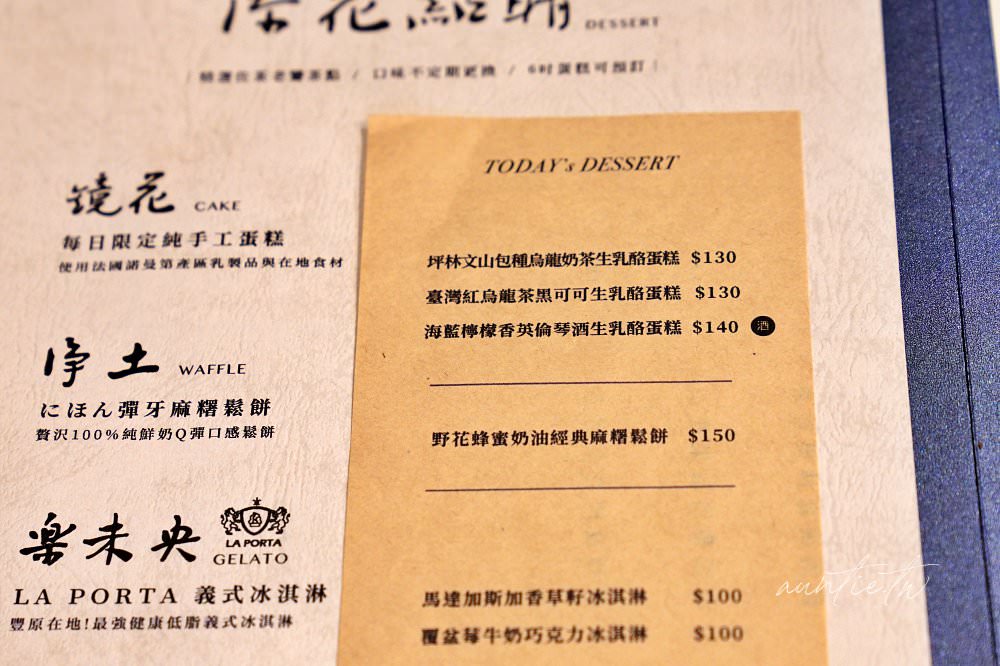 DESSERT
精選佐茶老饕茶點 / 口味不定期更換 / 6吋蛋糕可預訂
鏡花 CAKE
每日限定純手工蛋糕
使用法國諾曼第產區乳製品與在地食材
淨土 WAFFLE
にほん彈牙麻糬鬆餅
贅沢100%純鮮奶Q彈口感鬆餅
楽未央 LA PORTA GELATO
LA PORTA 義式冰淇淋
豐原在地!最強健康低脂義式冰淇淋
TODAY's DESSERT
坪林文山包種烏龍奶茶生乳酪蛋糕 $130
臺灣紅烏龍茶黑可可生乳酪蛋糕 $130
海藍檸檬香英倫琴酒生乳酪蛋糕 $140 酒
野花蜂蜜奶油經典麻糬鬆餅 $150
馬達加斯加香草籽冰淇淋 $100
覆盆莓牛奶巧克力冰淇淋 $100
auntie.tw